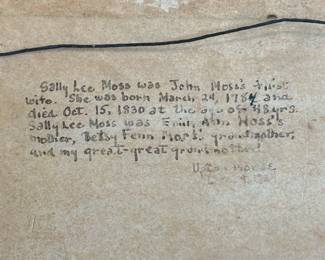 Sally Lee Moss was John Moss's first
wife. She was born March 24, 1784 and
died Oct. 15, 1830 at the age of 48 yrs.
Sally Lee Moss was Ann Moss's
mother, Betsy Fenn grandmother,
and my great-great grandmother